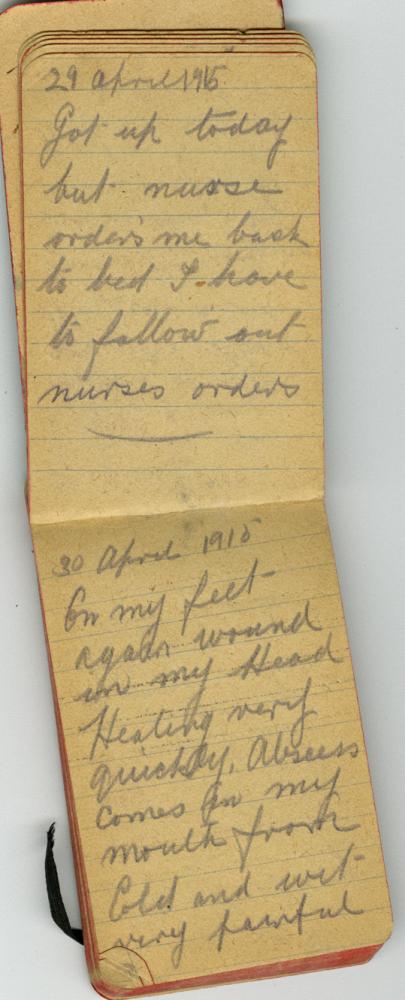 29 April 1915
Got up today
but nurse
orders me back
to bed I have
to follow out
nurses orders
30 April 1915
On my feet
again wound
in my Head
Healing very
quickly. Abscess
comes in my
mouth from
Cold and wet
very painful